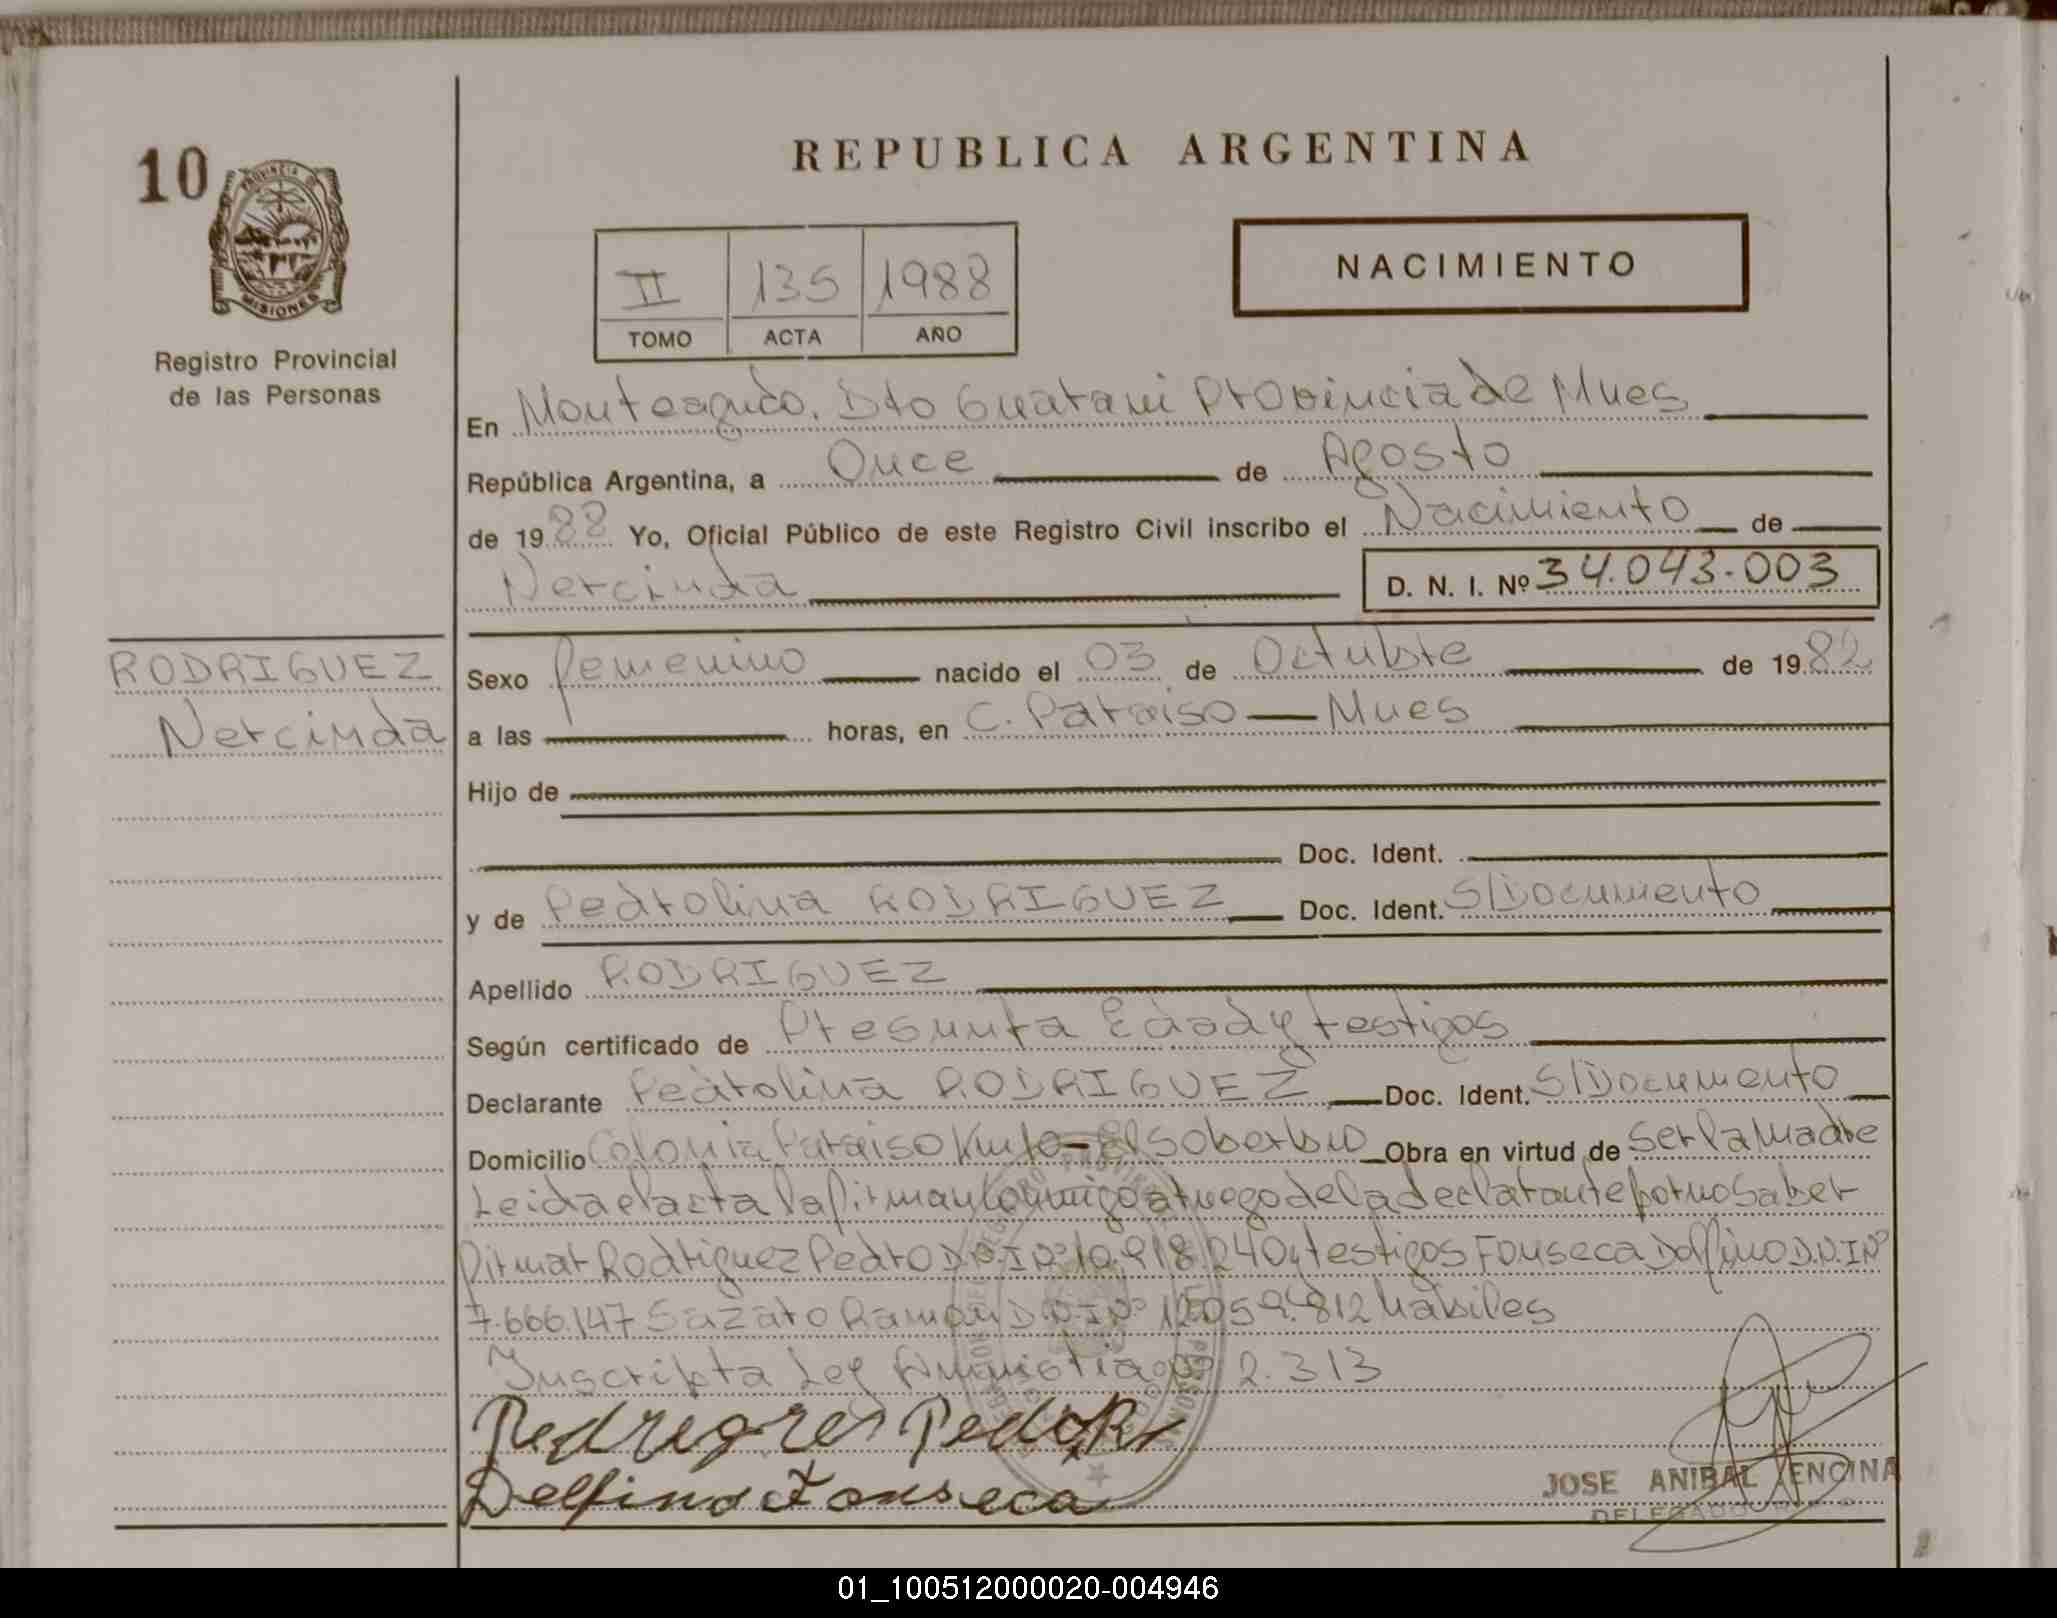 REPUBLICA ARGENTINA
10
PROVINCIA DE
MISIONES
Registro Provincial
de las Personas
II 135 1988
TOMO ACTA AÑO
NACIMIENTO
En Monteagudo. Dto Guarani Provincia de Mnes
República Argentina, a Once de Agosto
de 1988 Yo, Oficial Público de este Registro Civil inscribo el Nacimiento de
Nercinda D. N. I. Nº 34.043.003
RODRIGUEZ
Nercinda
Sexo femenino nacido el 03 de Octubre de 1982
a las horas, en C. Paraiso — Mnes
Hijo de
Doc. Ident.
y de Pedrolina RODRIGUEZ Doc. Ident. S/Documento
Apellido RODRIGUEZ
Según certificado de Presunta Edad y testigos
Declarante Pedrolina RODRIGUEZ Doc. Ident. S/Documento
Domicilio Colonia Paraiso El Soberbio Obra en virtud de ser la Madre
Leida el acta la firman conmigo a ruego de la declarante por no saber
firmar Rodriguez Pedro D.N.I Nº 10.918.240 y testigos Fonseca Dolfino D.N.I Nº
7.666.147 Sazaro Ramon D.N.I Nº 12.059.812 habiles
Inscripta Ley Amnistia nº 2.313
Delfino Fonseca
JOSE ANIBAL ENCINA
DELEGADO
01_100512000020-004946